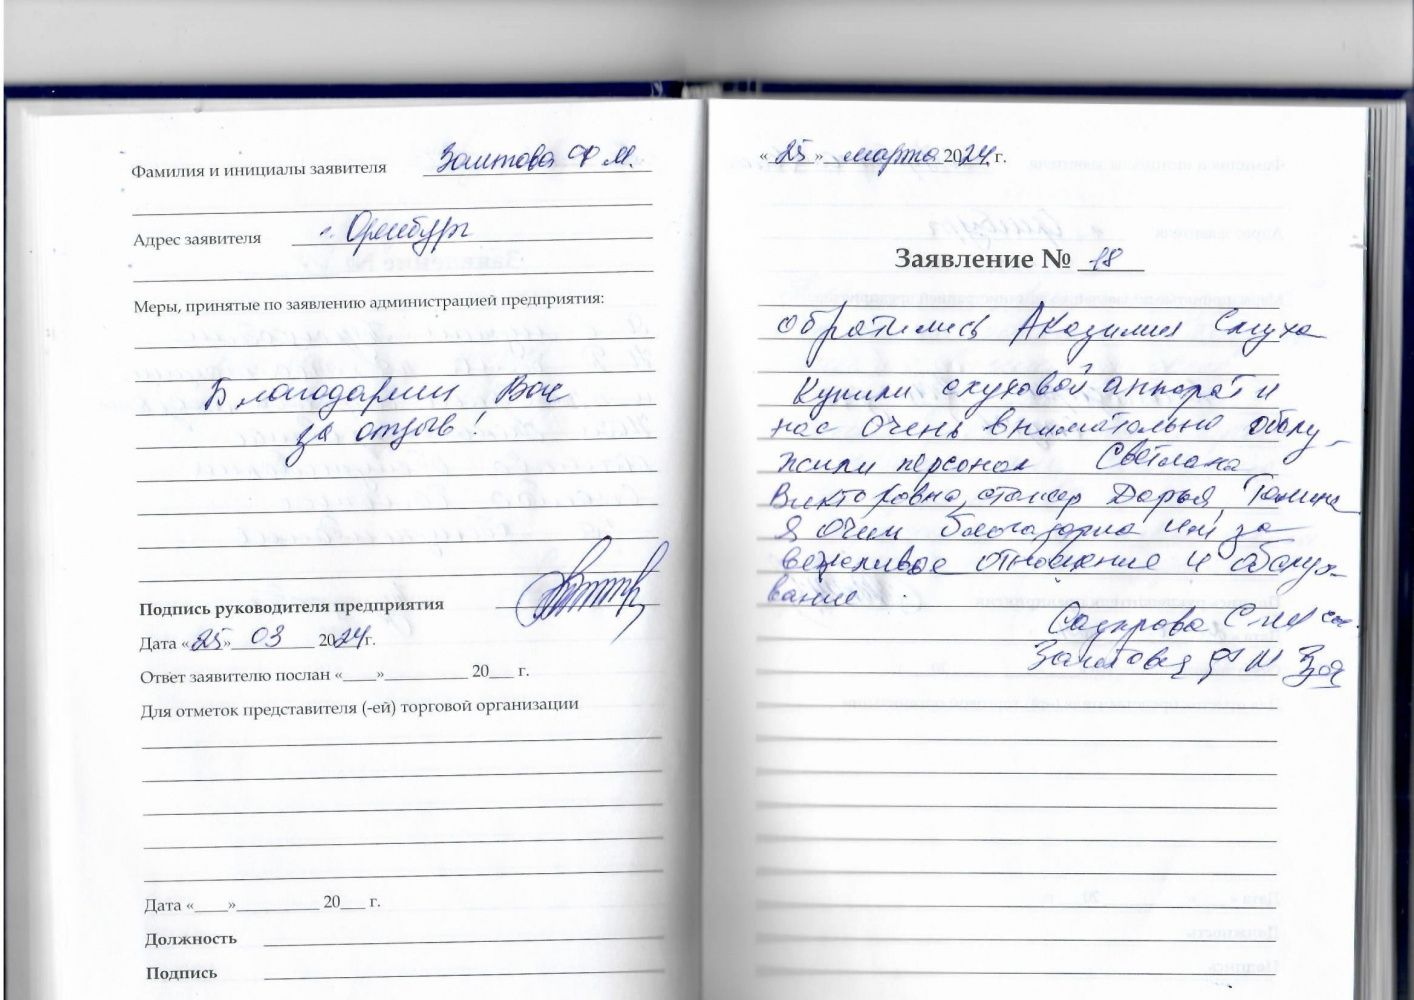 Фамилия и инициалы заявителя Заитова Ф М.
Адрес заявителя г. Оренбург
Меры, принятые по заявлению администрацией предприятия:
Благодарим Вас
за отзыв!
Подпись руководителя предприятия
Дата «25» 03 2024г.
Ответ заявителю послан «____»__________ 20___ г.
Для отметок представителя (-ей) торговой организации
Дата «____»__________ 20___ г.
Должность
Подпись
«25» марта 2024 г.
Заявление № 18
обратились Академия Слуха
Купили слуховой аппарат и
нас очень внимательно обслу-
жили персонал Светлана
Викторовна, стажер Дарья,
я очен благодарна им за
вежливое отношение и обслужи-
вание.